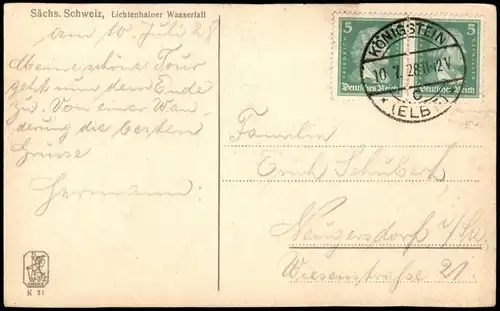 Sächs. Schweiz, Lichtenhainer Wasserfall
am 10. Juli 28
Meine schöne Tour
geht nun dem Ende
zu. Von einer Wan-
derung die besten
Grüsse
Hermann.
5 5
Deutsches Reich Deutsches Reich
KÖNIGSTEIN
10.7.28 11-12V
c
* (ELBE) *
Familie
Erich Schubert
Neugersdorf i/Sa
Wiesenstraße 21.
K 31